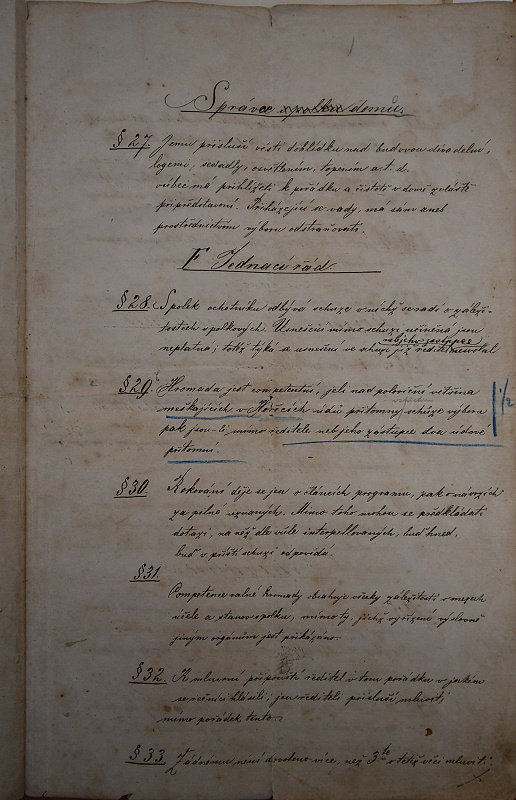 Správce spolku domu.
§ 27. Jemu přísluší vésti dohlídku nad budovou divadelní,
logemi, sedadly, osvětlením, topením a t. d.
vůbec má přihlížeti k pořádku a čistotě v domě zvláště
při představení. Přiházející se vady, má sám aneb
prostřednictvím výboru odstraňovati.
F Jednací řád.
§ 28. Spolek ochotníků odbývá schuze v nichž se radí o záleži-
tostech spolkových. Usnešení mimo schuzi učiněná jsou
neb jeho zástupce
neplatná; totéž týká se usnešení ve schuzi již ředitel nesvolal
§ 29. Hromada jest competentní, jeli nad poloviční většina
meškajících v Hořicích údů přítomny schůze výboru
pak jsou-li mimo ředitele neb jeho zástupce dva údové
přítomni.
1/2
§ 30. Rokování děje se jen o článcích programu, pak o návrzích
za pilné uznaných. Mimo toho mohou se předkládati
dotazi, na něž dle vůle interpellovaných, buď hned,
buď v příští schuzi odpovídá.
§ 31.
Competence valné hromady obsahuje všecky záležitosti v mezech
účele a stanov spolku, mimo ty, jichž vyřízení výslovně
jiným orgánům jest přikázáno.
§ 32. K mluvení připouští ředitel v tom pořádku v jakém
se řečníci hlásili; jen řediteli přísluší mluviti
mimo pořádek tento.
§ 33. Žádnému není dovoleno více, než 3te o téže věci mluviti.